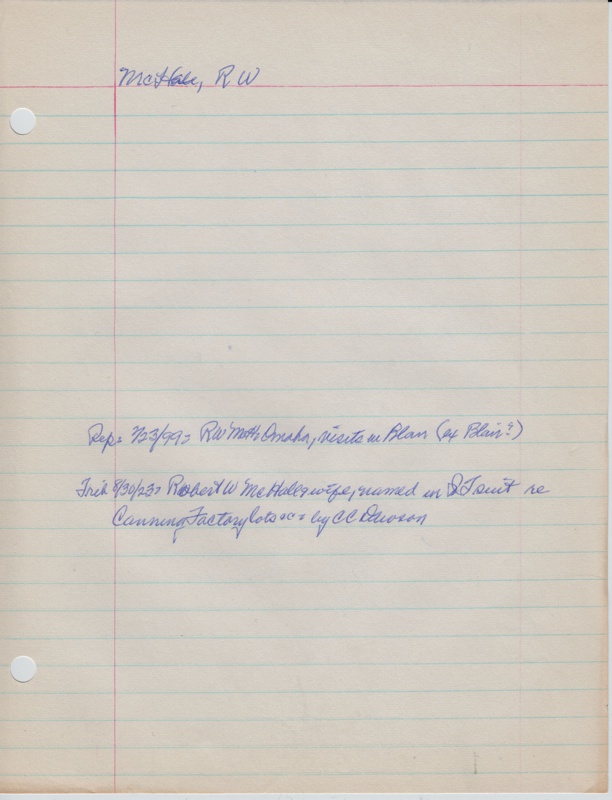 McHale, R W
Rep: 7/23/99 = RW McH Omaha, visits in Blair (ex Blair?)
Trib 8/30/23= Robert W McHale & wife, named in QT suit re
Canning Factory lots by CC Dawson